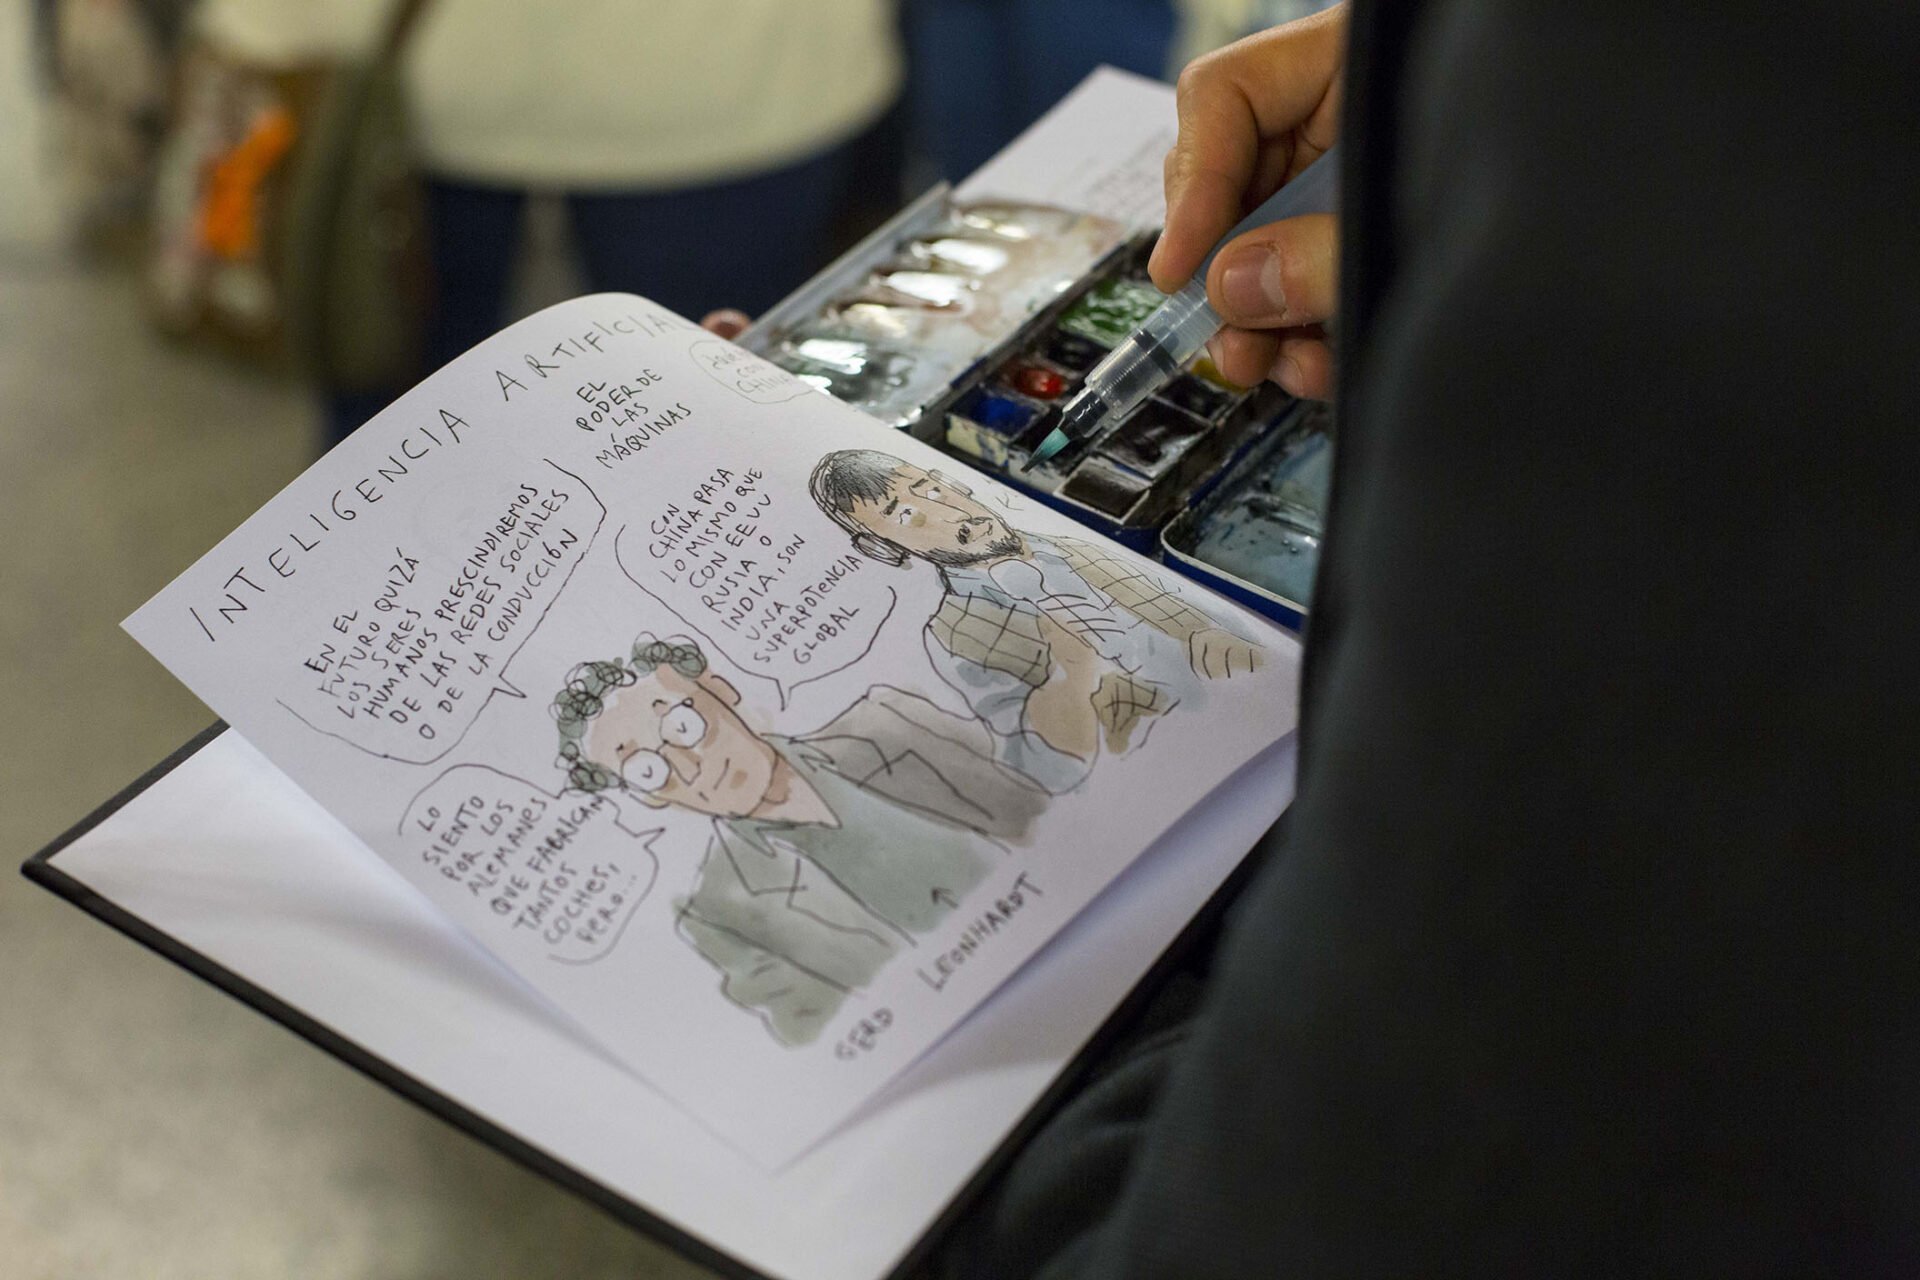 INTELIGENCIA ARTIFICIAL
EL
PODER DE
LAS
MÁQUINAS
¿QUÉ
CON
CHINA
EN EL
FUTURO QUIZÁ
LOS SERES
HUMANOS PRESCINDIREMOS
DE LAS REDES SOCIALES
O DE LA CONDUCCIÓN
CON
CHINA PASA
LO MISMO QUE
CON EEUU
RUSIA O
INDIA, SON
UNA
SUPERPOTENCIA
GLOBAL
LO
SIENTO
POR LOS
ALEMANES
QUE FABRICAN
TANTOS
COCHES,
PERO...
GERD LEONHARDT